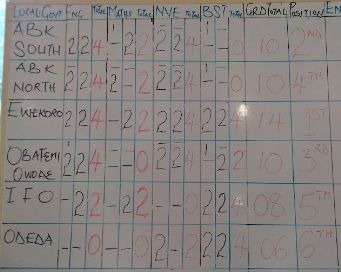 LOCAL GOVT ENG TOTAL MATHS TOTAL NVE TOTAL BST TOTAL GRD TOTAL POSITION EN
ABK SOUTH 2 2 4 - 2 2 2 2 4 - - 0 10 2ND
ABK NORTH 2 2 4 - 2 2 2 2 4 - - 0 10 4TH
EWEKORO 2 2 4 - 2 2 2 2 4 2 2 4 14 1ST
OBAFEMI OWODE 2 2 4 - - 0 2 2 4 - 2 2 10 3RD
IFO - 2 2 - 2 2 - - 0 2 2 4 08 5TH
ODEDA - - 0 - - 0 2 - 2 2 2 4 06 6TH